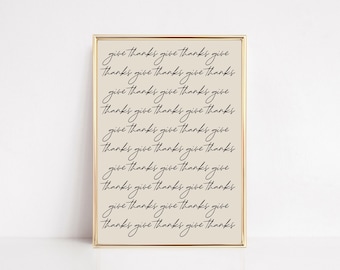 give thanks give thanks give
thanks give thanks give thanks
give thanks give thanks give
thanks give thanks give thanks
give thanks give thanks give
thanks give thanks give thanks
give thanks give thanks give
thanks give thanks give thanks
give thanks give thanks give
thanks give thanks give thanks